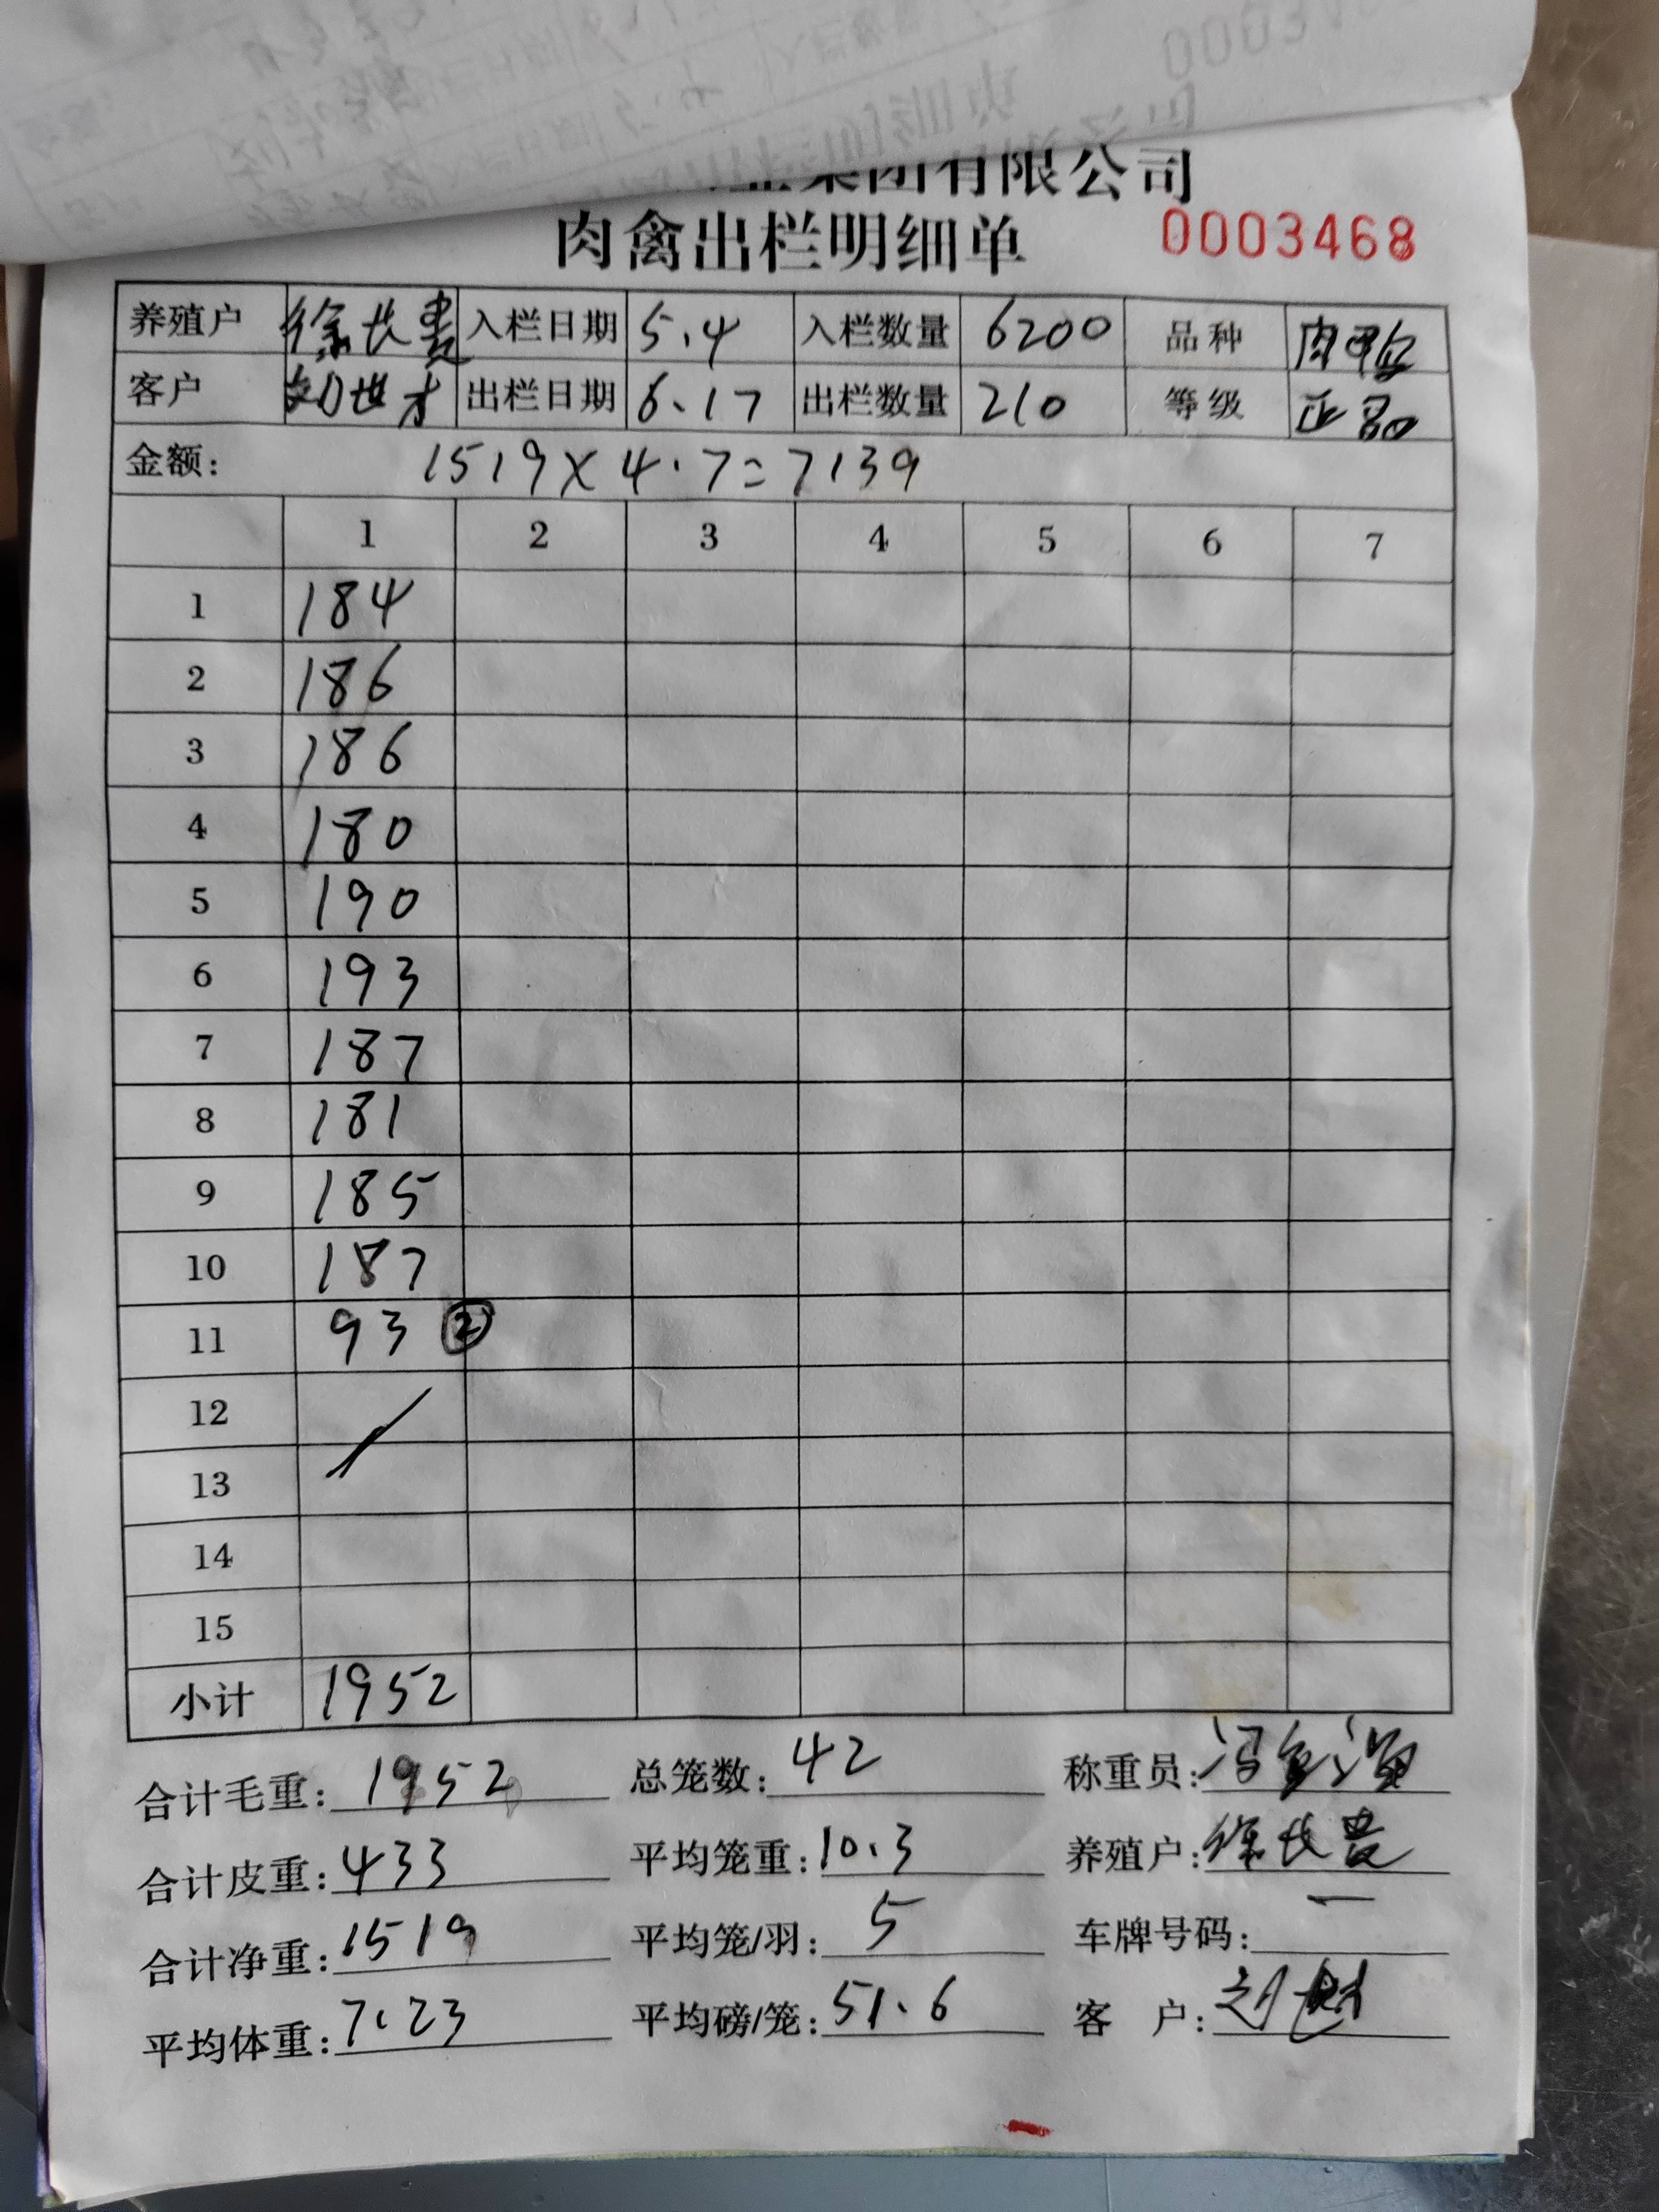 集团有限公司
肉禽出栏明细单 0003468
养殖户 徐长贵 入栏日期 5.4 入栏数量 6200 品种 肉鸭
客户 刘世才 出栏日期 6.17 出栏数量 210 等级 正品
金额: 1519×4.7=7139
1 2 3 4 5 6 7
1 184
2 186
3 186
4 180
5 190
6 193
7 187
8 181
9 185
10 187
11 93 ②
12
13
14
15
小计 1952
合计毛重: 1952 总笼数: 42 称重员:
合计皮重: 433 平均笼重: 10.3 养殖户: 徐长贵
合计净重: 1519 平均笼/羽: 5 车牌号码: 一
平均体重: 7.23 平均磅/笼: 51.6 客 户: